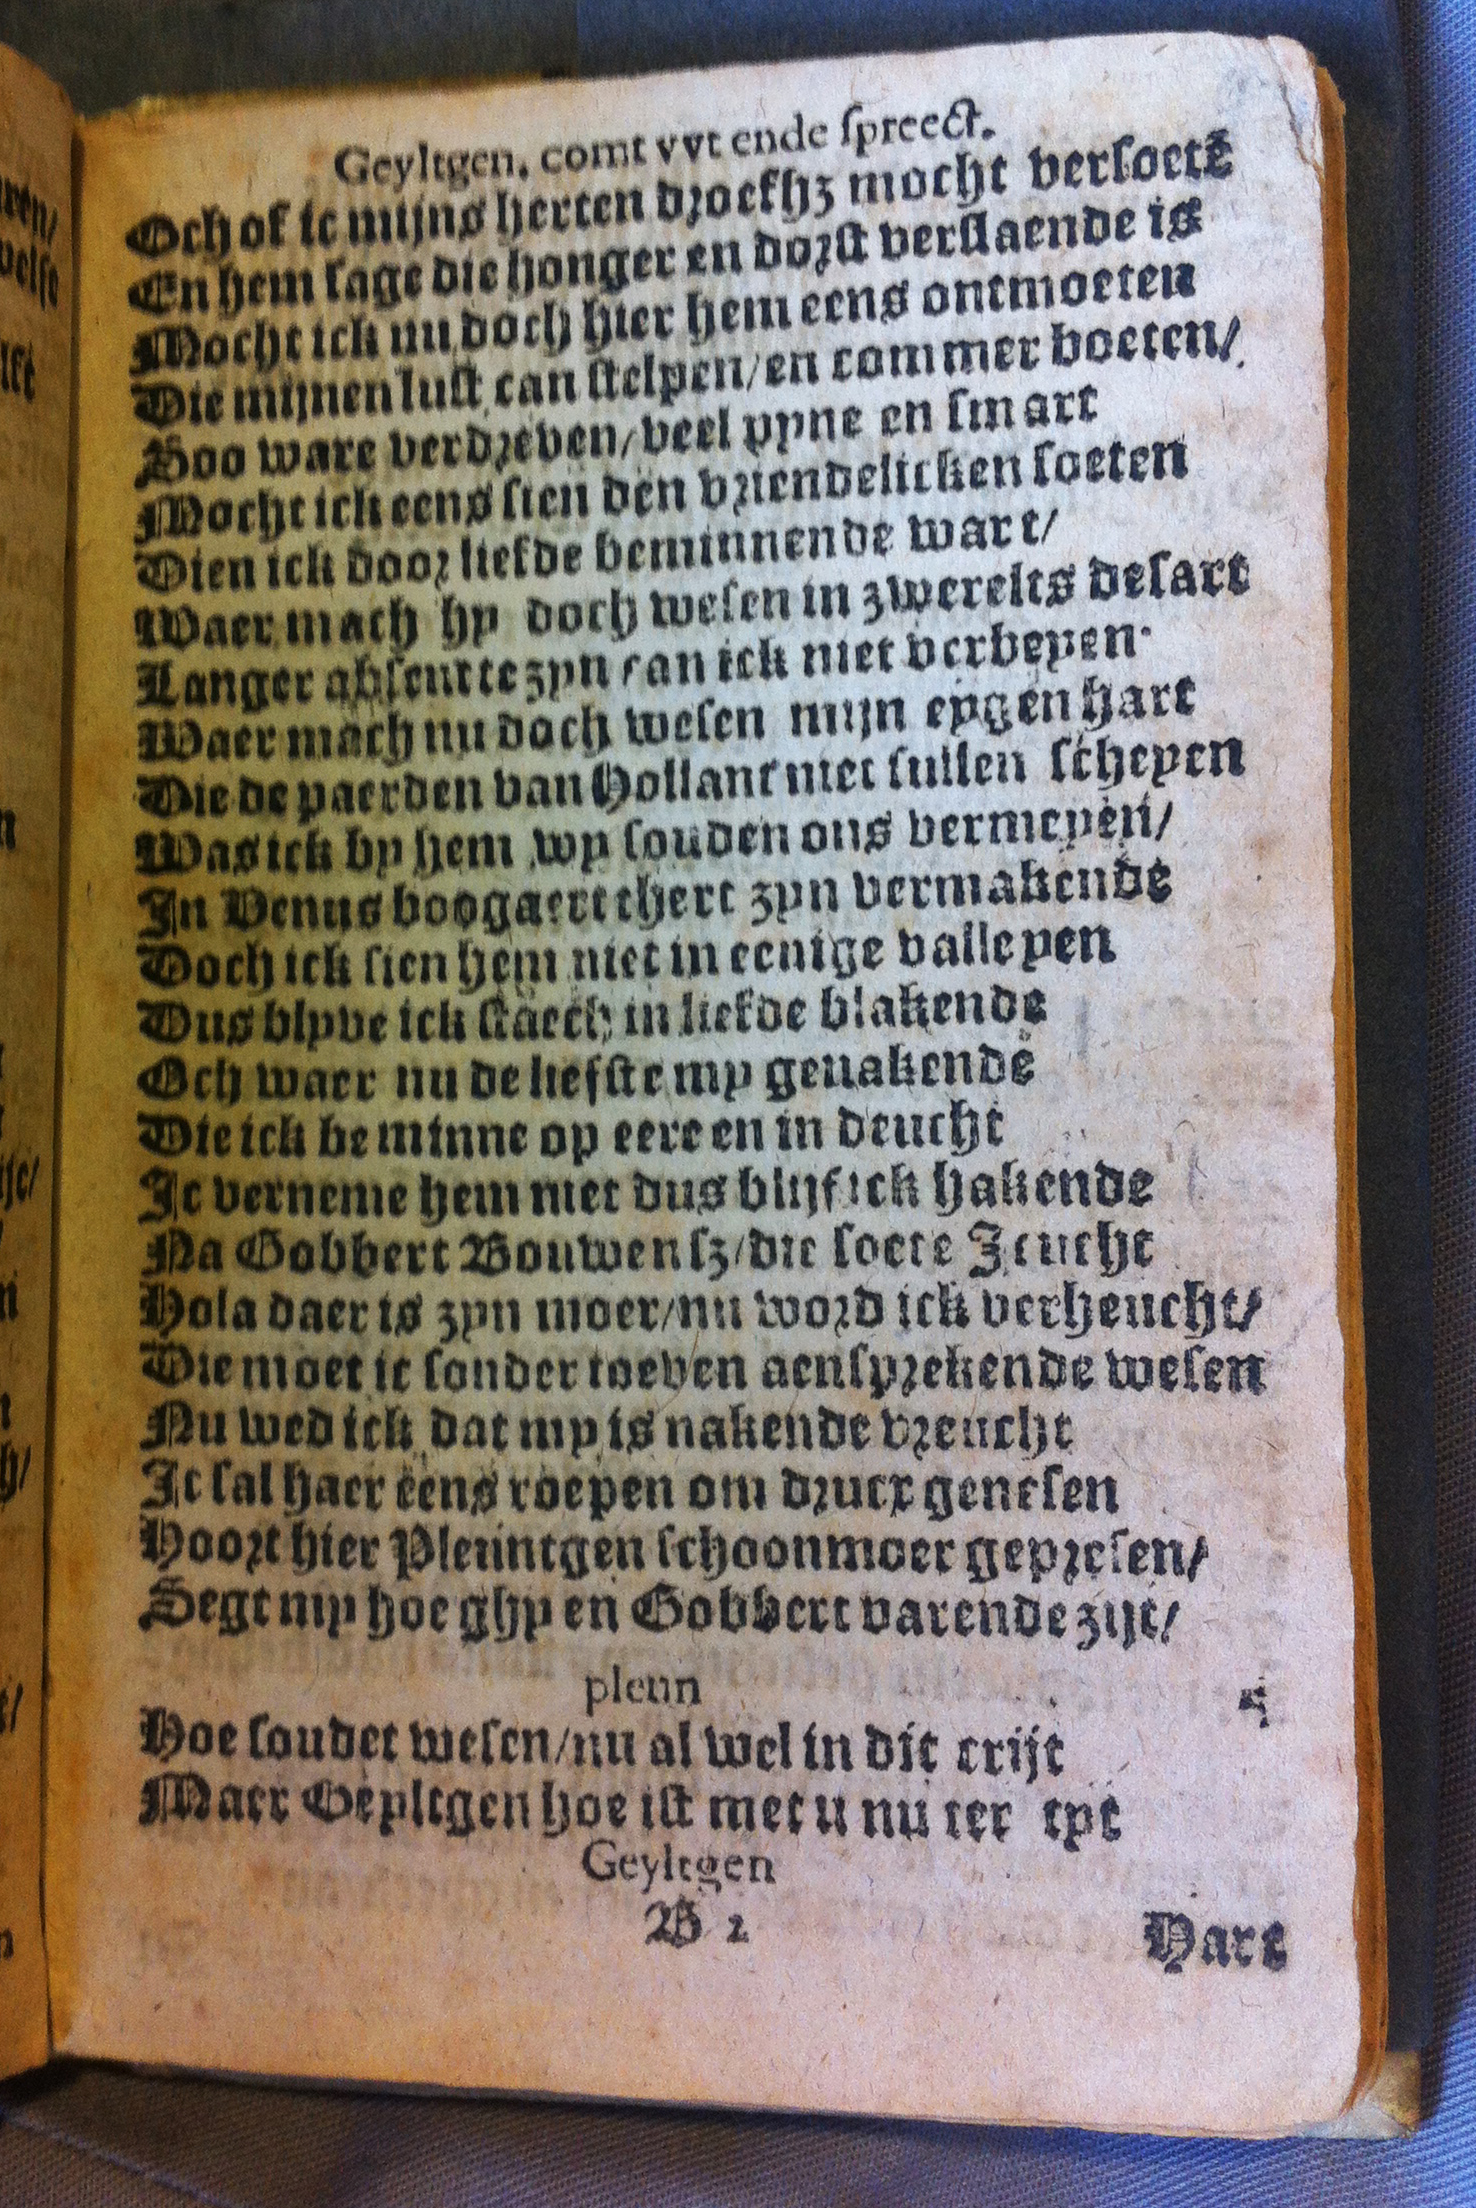 Geyltgen. comt vvt ende spreect.
Och of ic mijns herten droefhz mocht versoetē
En hem sage die honger en dorst verslaende is
Mocht ick nu doch hier hem eens ontmoeten
Die mijnen lust can stelpen/en commer boeten/
Soo ware verdreven/veel pyne en smart
Mocht ick eens sien den vriendelicken soeten
Dien ick door liefde beminnende wart/
Waer mach hy doch wesen in zwerelts desart
Langer absent te zyn can ick niet verbeyen.
Waer mach nu doch wesen mijn eygen hart
Die de paerden van Hollant niet sullen scheyen
Was ick by hem wy souden ons vermeyen/
In Venus boogaert thert zyn vermakende
Doch ick sien hem niet in eenige valleyen
Dus blyve ick staech in liefde blakende
Och waer nu de liefste my genakende
Die ick beminne op eere en in deucht
Ic verneme hem niet dus blijf ick hakende
Na Gobbert Bouwensz/die soete Jeucht
Hola daer is zyn moer/nu word ick verheucht/
Die moet ic sonder toeven aensprekende wesen
Nu wed ick dat my is nakende vreucht
Ic sal haer eens roepen om drucx genesen
Hoort hier Pleuntgen schoonmoer gepresen/
Segt my hoe ghy en Gobbert varende zijt/
pleun
Hoe soudet wesen/nu al wel in dit crijt
Maer Geyltgen hoe ist met u nu ter tyt
Geyltgen
B 2
Hart